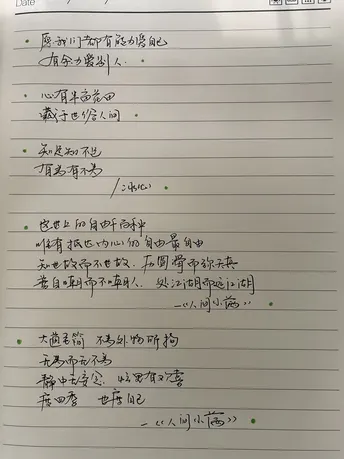 Date
愿我们都有能力爱自己
有余力爱别人.
心有半亩花田
藏于世俗人间
知足知不足
有为有不为
/冰心
这世上的自由千百种
唯有抵达内心的自由最自由
知世故而不世故. 历圆滑而弥天真
善自嘲而不嘲人. 处江湖而远江湖
—《人间小满》
大道至简 不为外物所拘
无为而无不为
静中去 忙里有欢喜
度四季 也度自己
—《人间小满》